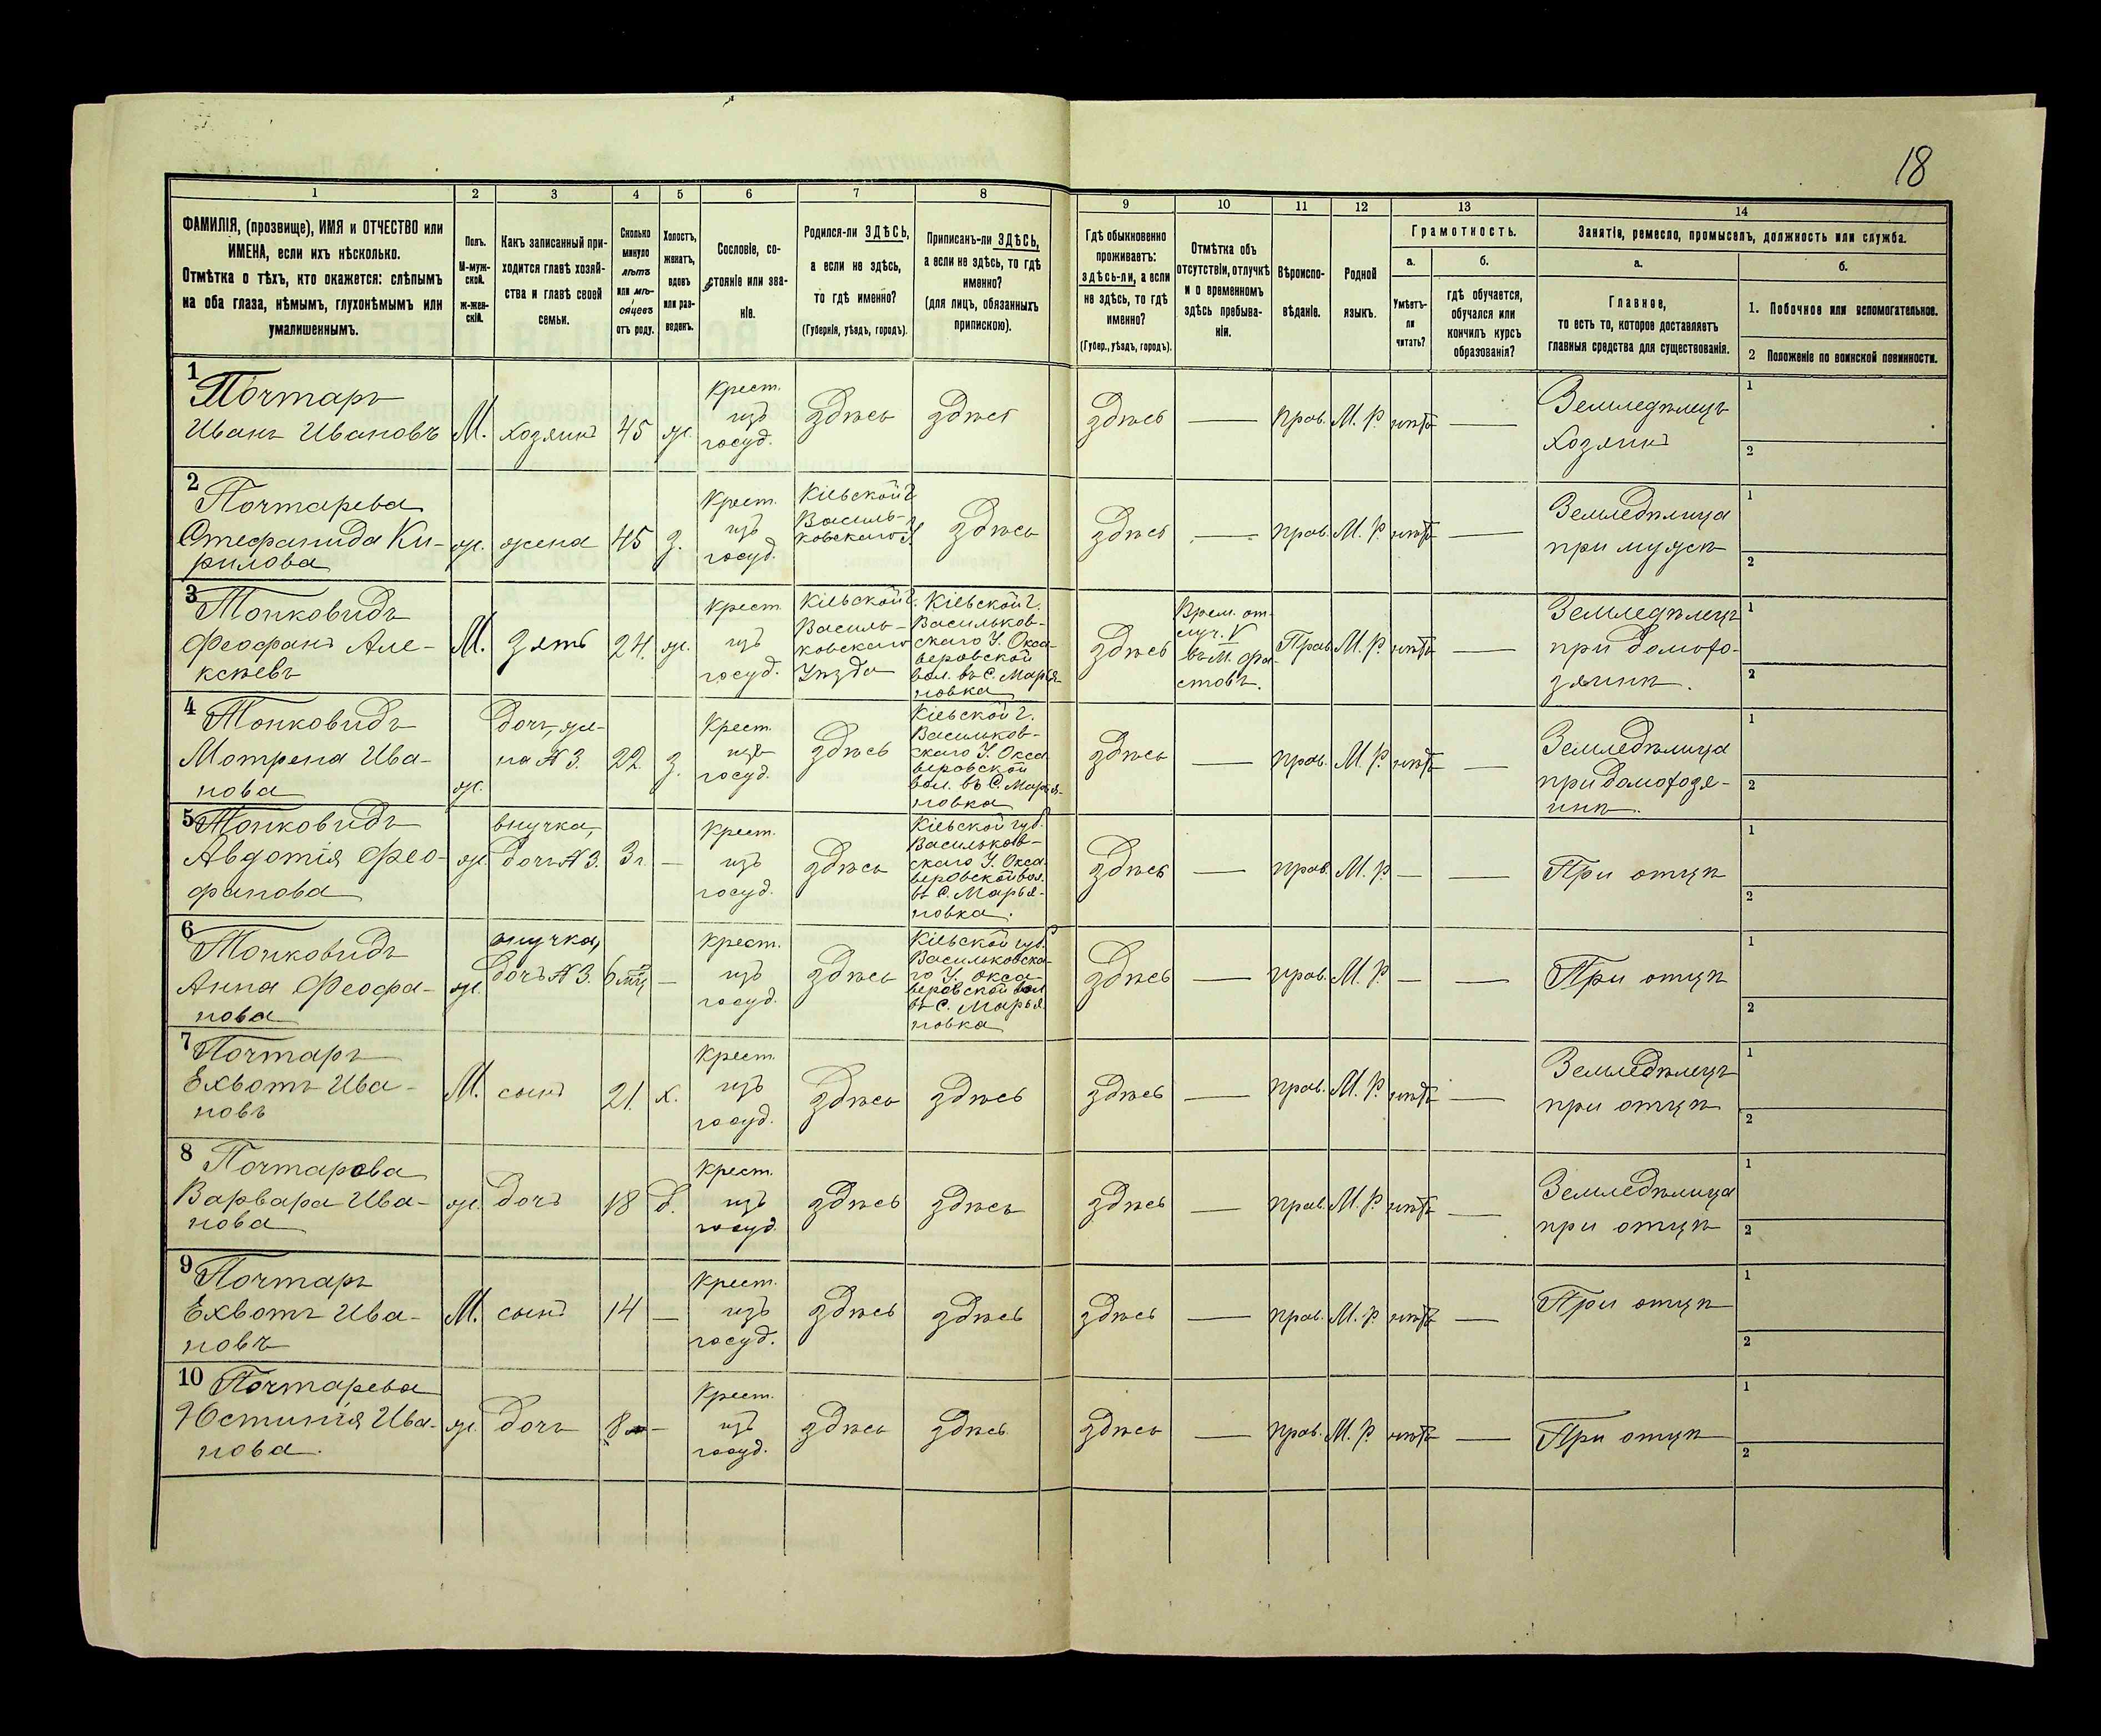 18
1 2 3 4 5 6 7 8 9 10 11 12 13 14
ФАМИЛІЯ, (прозвище), ИМЯ и ОТЧЕСТВО или
ИМЕНА, если ихъ нѣсколько.
Отмѣтка о тѣхъ, кто окажется: слѣпымъ
на оба глаза, нѣмымъ, глухонѣмымъ или
умалишеннымъ.
Полъ.
М-муж-
ской.
ж-жен-
скій.
Какъ записанный при-
ходится главѣ хозяй-
ства и главѣ своей
семьи.
Сколько
минуло
лѣтъ
или мѣ-
сяцевъ
отъ роду.
Холостъ,
женатъ,
вдовъ
или раз-
веденъ.
Сословіе, со-
стояніе или зва-
ніе.
Родился-ли ЗДѢСЬ,
а если не здѣсь,
то гдѣ именно?
(Губернія, уѣздъ, городъ).
Приписанъ-ли ЗДѢСЬ,
а если не здѣсь, то гдѣ
именно?
(для лицъ, обязанныхъ
припискою).
Гдѣ обыкновенно
проживаетъ:
здѣсь-ли, а если
не здѣсь, то гдѣ
именно?
(Губер., уѣздъ, городъ).
Отмѣтка объ
отсутствіи, отлучкѣ
и о временномъ
здѣсь пребыва-
ніи.
Вѣроиспо-
вѣданіе.
Родной
языкъ.
Грамотность.
а.
Умѣетъ-
ли
читать?
б.
гдѣ обучается,
обучался или
кончилъ курсъ
образованія?
Занятіе, ремесло, промыселъ, должность или служба.
а.
Главное,
то есть то, которое доставляетъ
главныя средства для существованія.
б.
1. Побочное или вспомогательное.
2 Положеніе по воинской повинности.
1
Почтаръ
Иванъ Ивановъ
М.
хозяинъ
45
ж.
крест.
изъ
госуд.
здѣсь
здѣсь
здѣсь
—
прав.
М. Р.
нѣтъ
—
Земледѣлецъ
хозяинъ
1
2
2
Почтарева
Стефанида Ки-
рилова
ж.
жена
45
з.
крест.
изъ
госуд.
Кіевской г.
Василь-
ковскаго у.
здѣсь
здѣсь
—
прав.
М. Р.
нѣтъ
—
Земледѣлица
при мужѣ
1
2
3
Топковидъ
Феофанъ Але-
ксѣевъ
М.
зять
24.
ж.
крест.
изъ
госуд.
Кіевской г.
Василь-
ковскаго
Уѣзда
Кіевской г.
Васильков-
скаго У. Окса-
веровской
вол. въ С. Марья-
новка
здѣсь
Врем. от-
луч. V
въ М. Фа-
стовъ.
Прав.
М. Р.
нѣтъ
—
Земледѣлецъ
при домохо-
зяинѣ.
1
2
4
Топковидъ
Мотрена Ива-
нова
ж.
дочь, же-
на N 3.
22.
з.
крест.
изъ
госуд.
здѣсь
Кіевской г.
Васильков-
скаго У. Окса
веровской
вол. въ С. Марья-
новка
здѣсь
—
прав.
М. Р.
нѣтъ
—
Земледѣлица
при домохозя-
инѣ.
1
2
5
Топковидъ
Авдотія Фео-
фанова
ж.
внучка,
дочь N 3.
3 г.
—
крест.
изъ
госуд.
здѣсь
Кіевской губ.
Васильков-
скаго У. Окса
веровской вол.
въ С. Марья-
новка.
здѣсь
—
прав.
М. Р.
—
—
При отцѣ
1
2
6
Топковидъ
Анна Феофа-
нова
ж.
внучка,
дочь N 3.
6 мц
—
крест.
изъ
госуд.
здѣсь
Кіевской губ.
Васильковска-
го У. Окса-
веровской вол
въ С. Марья
новка
здѣсь
—
прав.
М. Р.
—
—
При отцѣ
1
2
7
Почтаръ
Ехвотъ Ива-
новъ
М.
сынъ
21.
х.
крест.
изъ
госуд.
здѣсь
здѣсь
здѣсь
—
прав.
М. Р.
нѣтъ
—
Земледѣлецъ
при отцѣ
1
2
8
Почтарова
Варвара Ива-
нова
ж.
дочь
18
д.
крест.
изъ
госуд.
здѣсь
здѣсь
здѣсь
—
прав.
М. Р.
нѣтъ
—
Земледѣлица
при отцѣ
1
2
9
Почтаръ
Ехвотъ Ива-
новъ
М.
сынъ
14
—
крест.
изъ
госуд.
здѣсь
здѣсь
здѣсь
—
прав.
М. Р.
нѣтъ
—
При отцѣ
1
2
10
Почтарева
Юстинія Ива-
нова.
ж.
дочь
8
—
крест.
изъ
госуд.
здѣсь
здѣсь
здѣсь
—
прав.
М. Р.
нѣтъ
—
При отцѣ
1
2